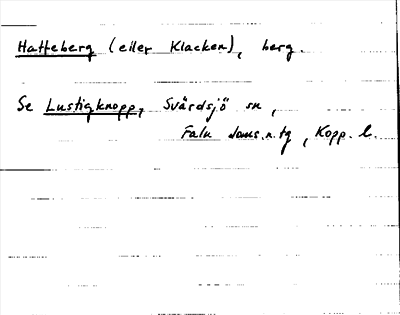 Hatteberg (eller Klacken), berg.
Se Lustigknopp, Svärdsjö sn,
Falu doms.n.tg, Kopp. l.